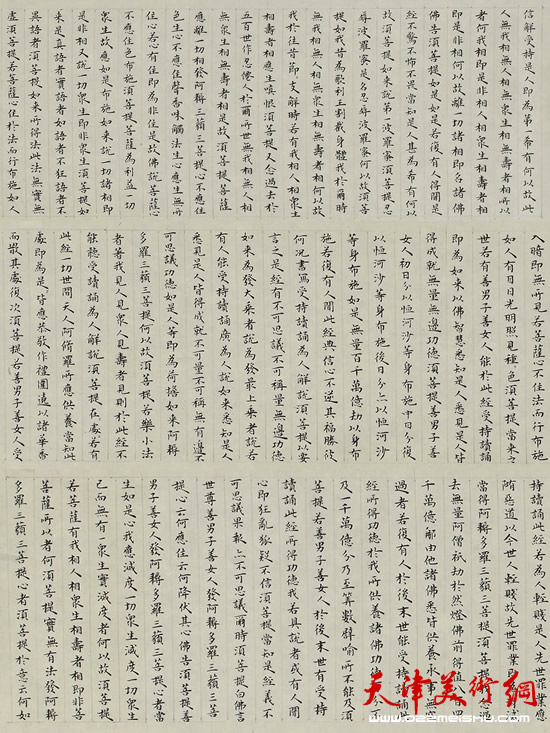 信解受持是人即為第一希有何以故此
人無我相無人相無衆生相無壽者相所以
者何我相即是非相人相衆生相壽者相
即是非相何以故離一切諸相即名諸佛
佛告須菩提如是如是若復有人得聞是
經不驚不怖不畏當知是人甚為希有何以
故須菩提如來說第一波羅蜜須菩提忍
辱波羅蜜是名忍辱波羅蜜何以故須菩
提如我昔為歌利王割截身體我於爾時
無我相無人相無衆生相無壽者相何以故
我於往昔節節支解時若有我相人相衆生
相壽者相應生嗔恨須菩提又念過去於
五百世作忍僊人於爾所世無我相無人相
無衆生相無壽者相是故須菩提菩薩
應離一切相發阿耨三藐三菩提心不應住
色生心不應住聲香味觸法生心應生無所
住心若心有住即為非住是故佛說菩薩心
不應住色布施須菩提菩薩為利益一切
衆生應如是布施如來說一切諸相即
是非相又說一切衆生即非衆生須菩提如
來是真語者實語者如語者不狂語者不
異語者須菩提如來所得法此法無實無
虛須菩提若菩薩心住於法而行布施如人
入暗即無所見若菩薩心不住法而行布施
如人有目日光明照見種種色須菩提當來之
世若有善男子善女人能於此經受持讀誦
即為如來以佛智慧悉知是人悉見是人皆
得成就無量無邊功德須菩提善男子善
女人初日分以恒河沙等身布施中日分復
以恒河沙等身布施後日分亦以恒河沙
等身布施如是無量百千萬億劫以身布
施若復有人聞此經典信心不逆其福勝彼
何況書寫受持讀誦為人解說須菩提以要
言之是經有不可思議不可稱量無邊功德
如來為發大乘者說為發最上乘者說若
有人能受持讀誦廣為人說如來悉知是人
悉見是人皆得成就不可量不可稱無有邊不
可思議功德如是人等即為荷擔如來阿耨
多羅三藐三菩提何以故須菩提若樂小法
者著我見人見衆生見壽者見則於此經不
能聽受讀誦為人解說須菩提在在處處若有
此經一切世間天人阿脩羅所應供養當知此
處即為是塔皆應恭敬作禮圍遶以諸華香
而散其處復次須菩提若善男子善女人受
持讀誦此經若為人輕賤是人先世罪業應
墮惡道以今世人輕賤故先世罪業則為消滅
當得阿耨多羅三藐三菩提須菩提我念過
去無量阿僧祇劫於然燈佛前得值八百四
千萬億那由他諸佛悉皆供養承事無空
過者若復有人於後末世能受持讀誦此
經所得功德於我所供養諸佛功德百分不
及一千萬億分乃至算數譬喻所不能及須
菩提若善男子善女人於後末世有受持
讀誦此經所得功德我若具說者或有人聞
心即狂亂狐疑不信須菩提當知是經義不
可思議果報亦不可思議爾時須菩提白佛言
世尊善男子善女人發阿耨多羅三藐三菩
提心云何應住云何降伏其心佛告須菩提善
男子善女人發阿耨多羅三藐三菩提心者當
生如是心我應滅度一切衆生滅度一切衆生
已而無有一衆生實滅度者何以故須菩提
若菩薩有我相人相衆生相壽者相即非菩
薩所以者何須菩提實無有法發阿耨
多羅三藐三菩提心者須菩提於意云何如
天津美術網